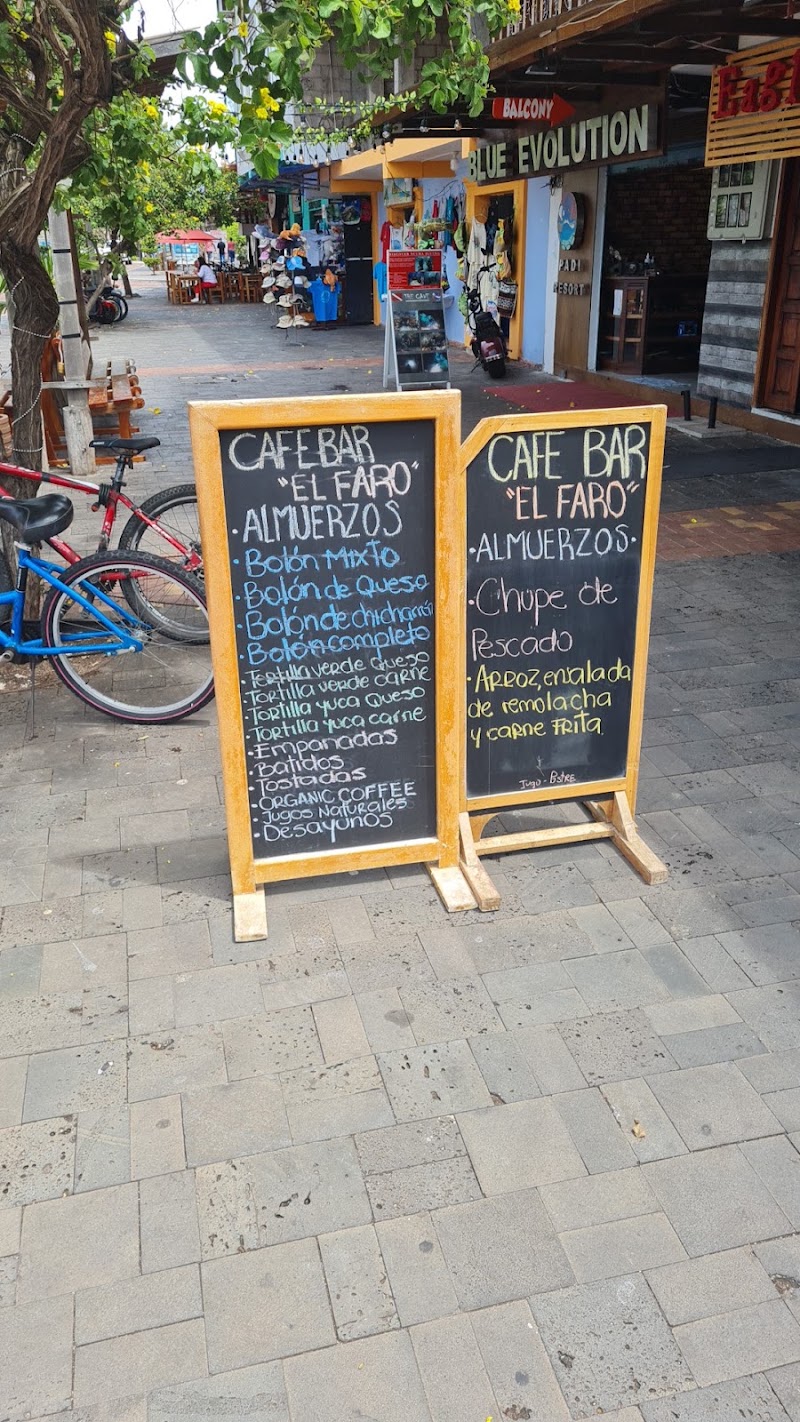 BALCONY
BLUE EVOLUTION
PADI
RESORT
CAFE BAR
"EL FARO"
·ALMUERZOS
·Bolón Mixto
·Bolón de Queso
·Bolón de chicharrón
·Bolón completo
·Tortilla verde Queso
·Tortilla verde carne
·Tortilla yuca Queso
·Tortilla yuca carne
·Empanadas
·Batidos
·Tostadas
·ORGANIC COFFEE
·Jugos Naturales
·Desayunos
CAFE BAR
"EL FARO"
·ALMUERZOS·
·Chupe de
Pescado
·Arroz, ensalada
de remolacha
y carne Frita.
Jugo - Postre